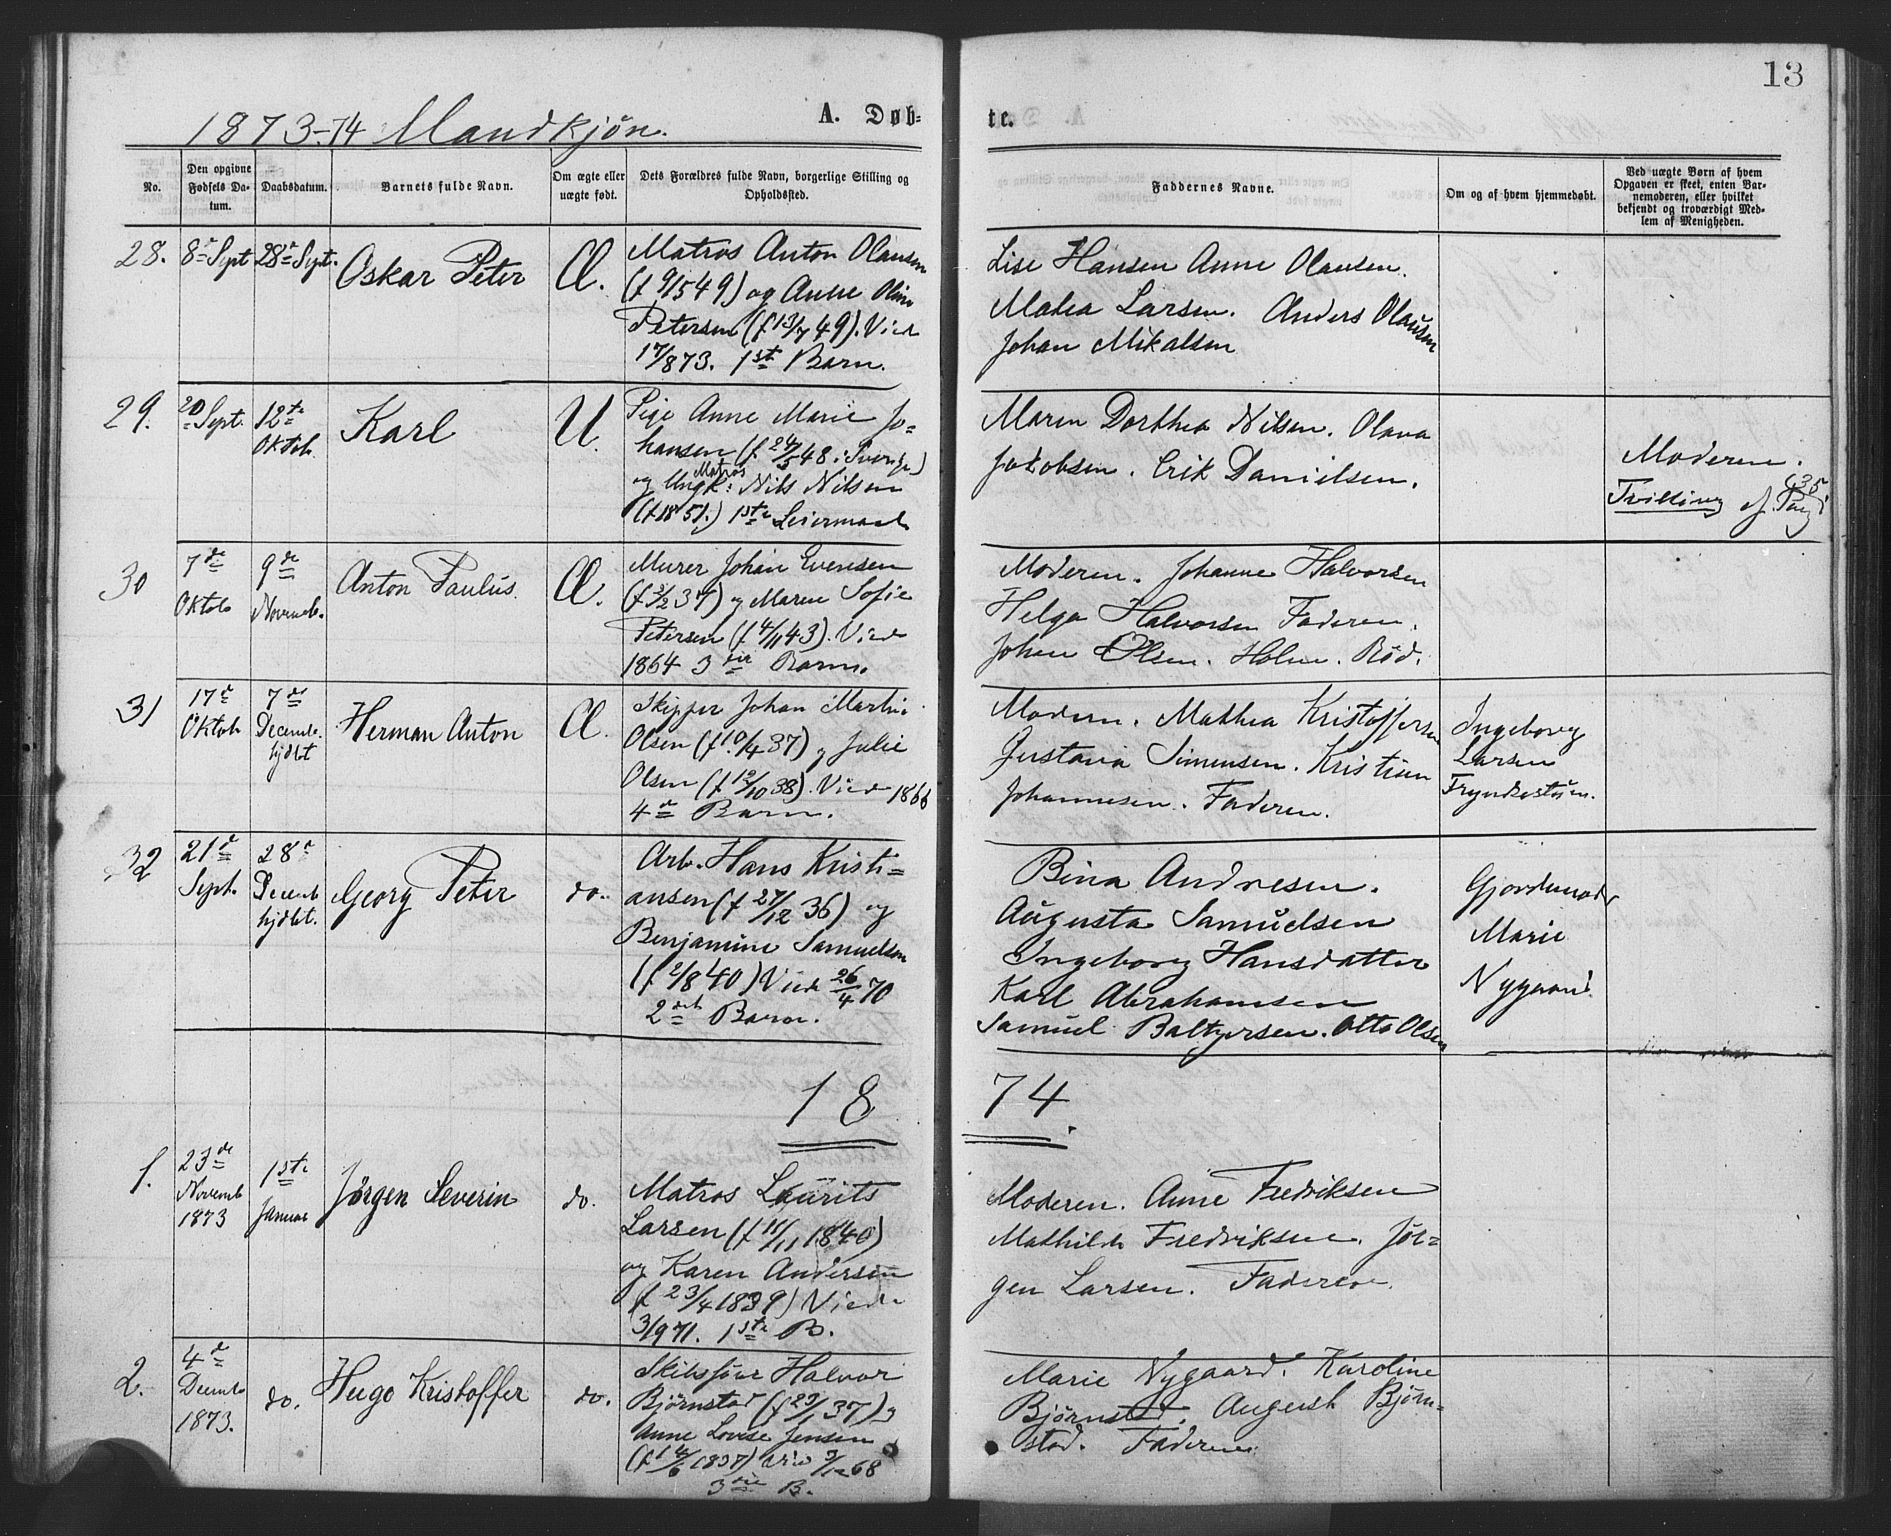 13
1873-74 Mandkjøn.
A. Døb-
te.
No.
Den opgivne Fødsels Da-
tum.
Daabsdatum.
Barnets fulde Navn.
Om ægte eller
uægte født.
Dets Forældres fulde Navn, borgerlige Stilling og
Opholdssted.
Faddernes Navne.
Om og af hvem hjemmedøbt.
Ved uægte Børn af hvem
Opgaven er skeet, enten Bar-
nemoderen, eller hvilket
bekjendt og troværdigt Med-
lem af Menigheden.
28.
8de Sept
28de Sept.
Oskar Peter
Æ.
Matros Anton Olausen
(f 9/5 49) og Anne Oline
Petersen (f 13/7 49). Vied
17/8 73. 1ste Barn.
Lise Hansen Anne Olausen.
Mathea Larsen. Anders Olausen
Johan Mikalsen
29.
20 Sept.
12te
Oktob.
Karl
U.
Pige Anne Marie Jo-
hansen (f 24/5 48 i Sverige)
og Ungk: Matros Nils Nilsen
(f 1851.) 1ste Leiermaal
Maren Dorthea Nilsen. Olava
Jakobsen. Erik Danielsen.
Moderen.
Tvilling
30
7de
Oktob
9de
Novemb.
Anton Paulus.
Æ.
Murer Johan Evensen
(f 3/2 37) og Maren Sofie
Petersen (f 4/11 43). Vied
1864 3die Barn.
Moderen. Johanne Halvorsen
Helga Halvorsen Faderen.
Johan Olsen. Holm. Rød.
31
17de
Oktob
7de
Decemb.
hjdbt
Herman Anton
Æ.
Skipper Johan Martin
Olsen (f 10/4 37) og Julie
Olsen (f 12/10 38). Vied 1866
4de Barn.
Modern. Mathea Kristoffersen
Gustava Simensen. Kristian
Johannesen. Faderen.
Ingeborg
Larsen
32
21de
Sept.
28de
Decemb
hjdbt.
Georg Peter
do.
Arb. Hans Kristi-
ansen (f 27/12 36) og
Benjamine Samuelsen
(f 2/8 40) Vied 26/4 70
2det Barn.
Bina Andresen.
Augusta Samuelsen
Ingeborg Hansdatter
Karl Abrahamsen
Samuel Baltzersen. Otto Olsen
Gjordemoder
Marie
Nygaard.
18
74.
1.
23de
Novemb
1873
1ste
Januar
Jørgen Severin
do.
Matros Laurits
Larsen (f 11/11 1840)
og Karen Andersen
(f 23/4 1839) Vied
3/9 71. 1ste B.
Moderen. Anne Fredriksen
Mathilde Fredriksen. Jør-
gen Larsen. Faderen.
2.
4de
Decmb
1873.
do.
Hugo Kristoffer
do.
Skibsfører Halvor
Bjørnstad (f 29/1 37) og
Anne Lovise Jensen
(f 14/6 1837) Vied 3/12 68
3die B.
Marie Nygaard. Karoline
Bjørnstad. August Bjørn-
stad. Faderen